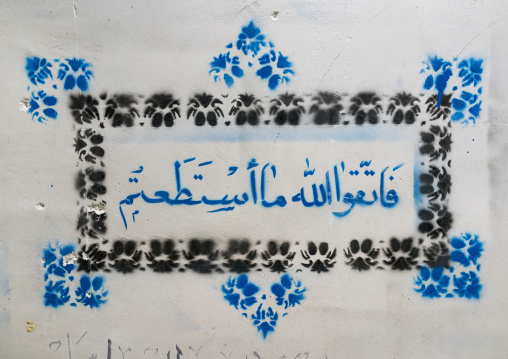 فَاتَّقوا الله ما أسْتَطَعتُم